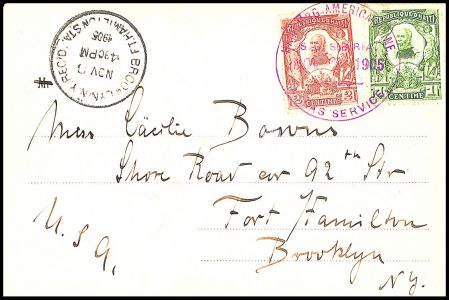 FT. HAMILTON STA.
1905
4 30 PM
NOV
BROOKLYN, N.Y. REC'D.
HAMBURG-AMERICAN LINE
S.S. SIBIRIA
1905
SEAS SERVICE
REPUBLIQUE D'HAITI
2 CENTIMES 2
REPUBLIQUE D'HAITI
1 CENTIME 1
Miss Cäcilie Bowns
Shore Road cor 92th Str
Fort Hamilton
U.S.A.
Brooklyn
N.Y.